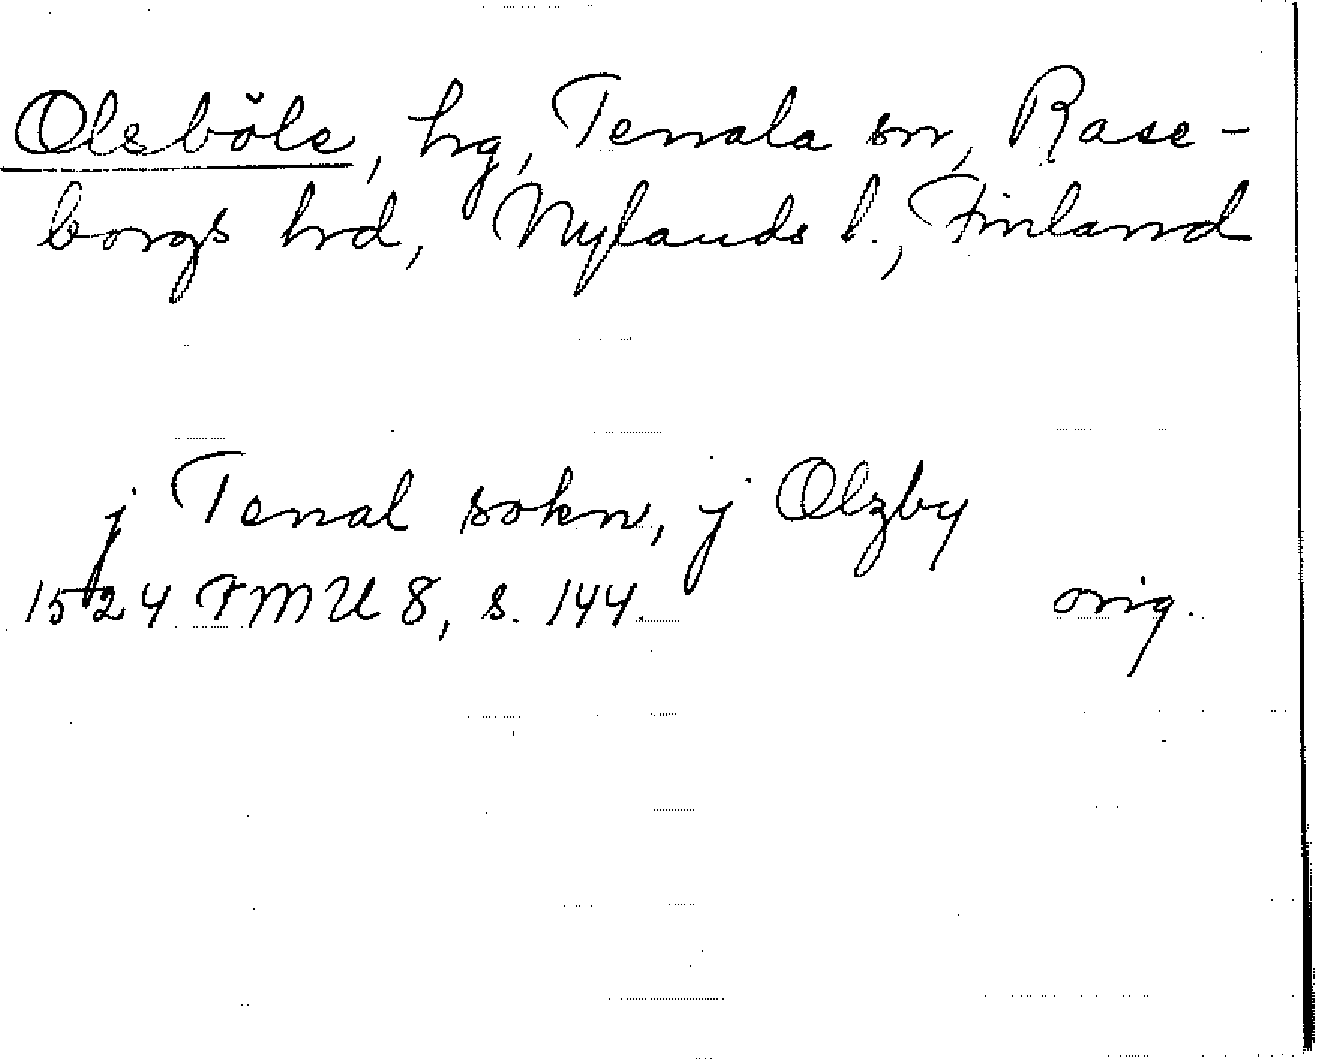 Olsböle, hg, Tenala sn, Rase-
borgs hrd, Nylands l., Finland
j Tenal sokn, j Olzby
1524 FMU 8, s. 144. orig.